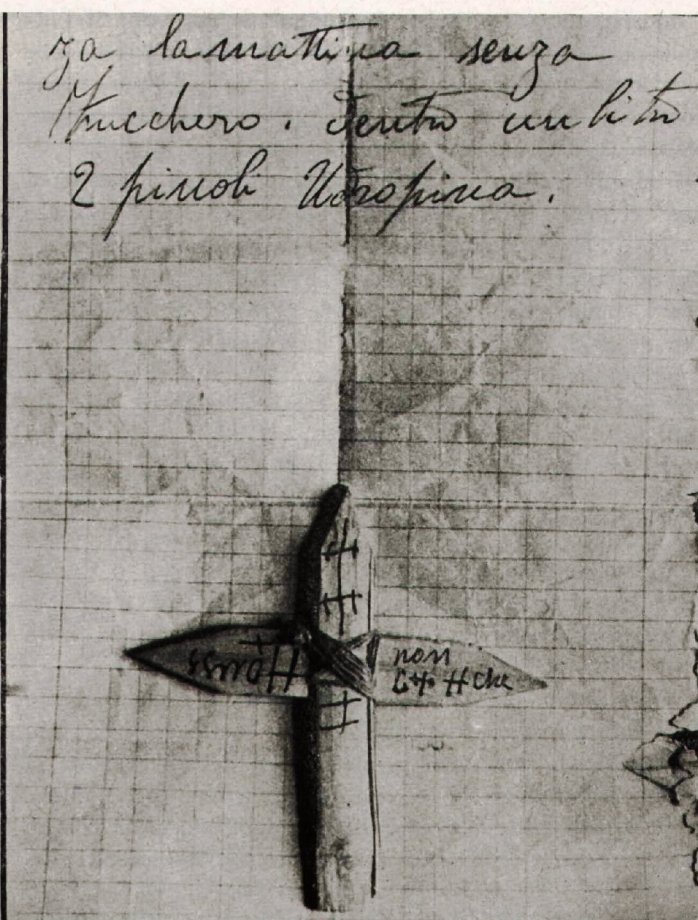 za la mattina senza
Zucchero. dentro un litro
2 piccoli Uropina.
non
che